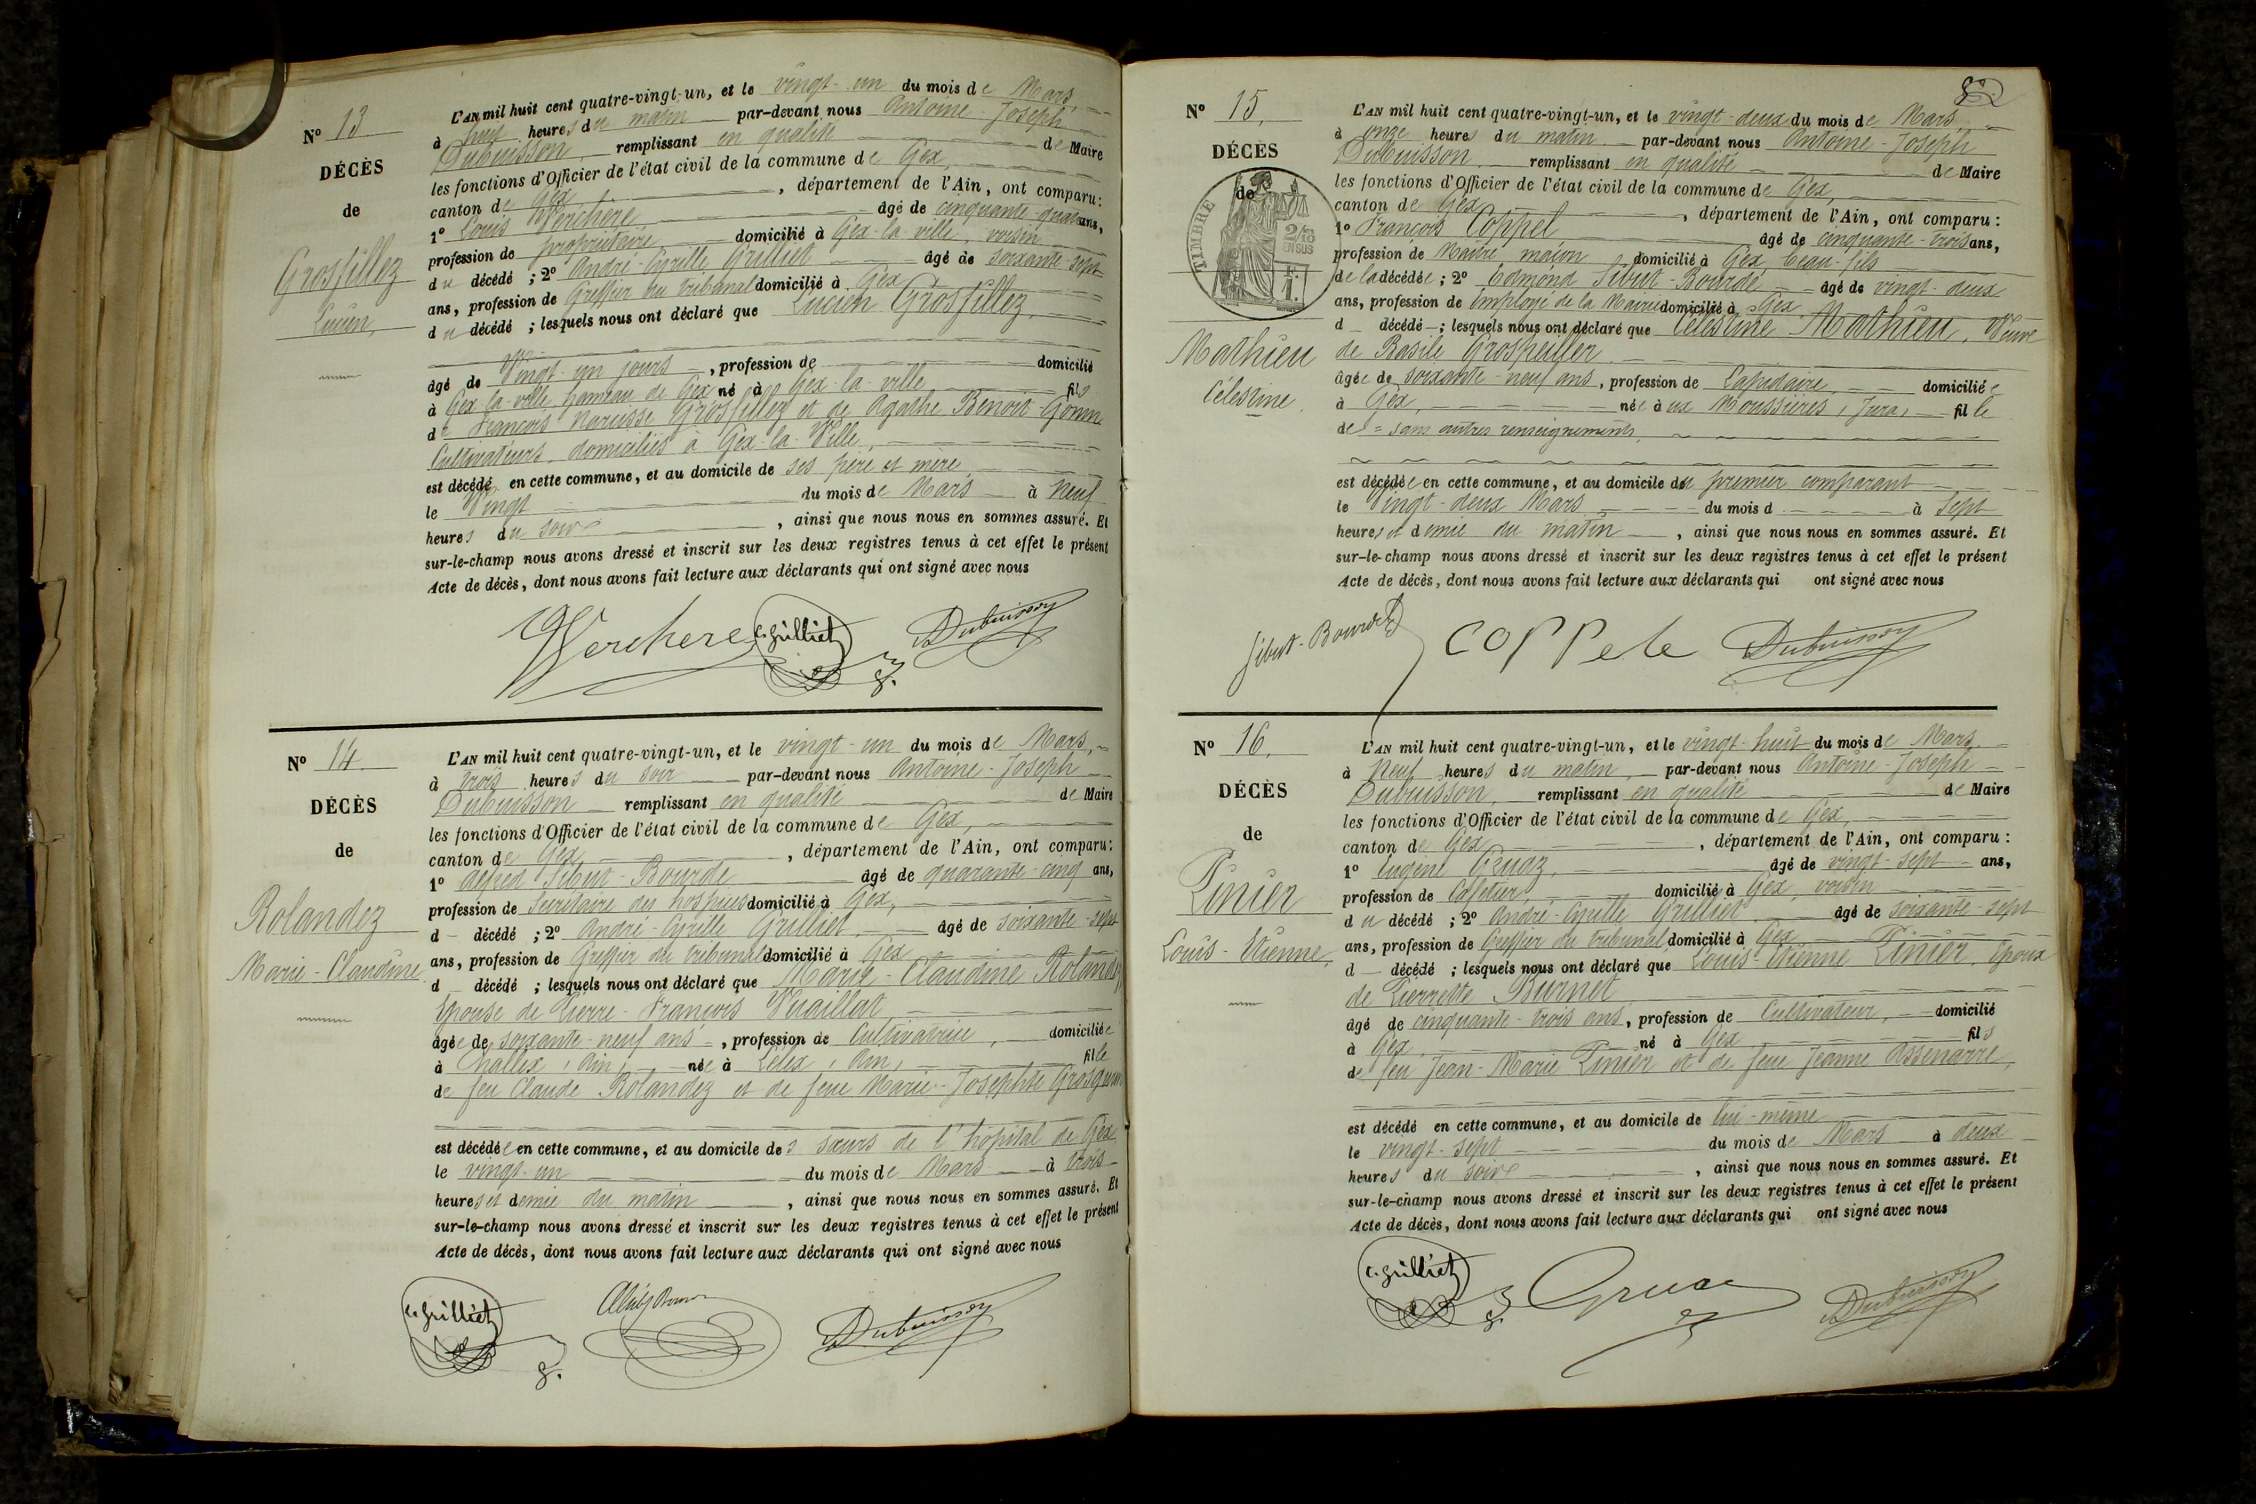 Nº 13.
DÉCÈS
de
Grosfillez
Lucien,
L'AN mil huit cent quatre-vingt-un, et le vingt-un du mois de Mars,
à huit heures du matin par-devant nous Antoine-Joseph
Dubuisson, remplissant en qualité de Maire
les fonctions d'Officier de l'état civil de la commune de Gex,
canton de Gex, département de l'Ain, ont comparu:
1º Louis Verchère, âgé de cinquante-quatre ans,
profession de propriétaire domicilié à Gex-la-ville, voisin
du décédé ; 2º André-Cyrille Grilliet âgé de soixante-sept
ans, profession de Greffier du tribunal domicilié à Gex
du décédé ; lesquels nous ont déclaré que Lucien Grosfillez,
âgé de Vingt-un jours, profession de domicilié
à Gex-la-ville, hameau de Gex né à Gex-la-ville fils
de François Narcisse Grosfillez et de Agathe Benoit-Gonin
Cultivateurs, domiciliés à Gex-la-Ville,
est décédé en cette commune, et au domicile de ses père et mère,
le Vingt du mois de Mars à Neuf
heures du soir, ainsi que nous nous en sommes assuré. Et
sur-le-champ nous avons dressé et inscrit sur les deux registres tenus à cet effet le présent
Acte de décès, dont nous avons fait lecture aux déclarants qui ont signé avec nous
Verchere c. Grilliet Dubuisson
Nº 14.
DÉCÈS
de
Rolandez
Marie-Claudine
L'AN mil huit cent quatre-vingt-un, et le vingt-un du mois de Mars,
à trois heures du soir par-devant nous Antoine-Joseph
Dubuisson remplissant en qualité de Maire
les fonctions d'Officier de l'état civil de la commune de Gex,
canton de Gex, département de l'Ain, ont comparu:
1º Alfred Sibut-Bourde âgé de quarante-cinq ans,
profession de Secrétaire des hospices domicilié à Gex,
d décédé ; 2º André-Cyrille Grilliet âgé de soixante-sept
ans, profession de Greffier du tribunal domicilié à Gex
d décédé ; lesquels nous ont déclaré que Marie-Claudine Rolandez
Epouse de Pierre-François Vuaillat,
âgée de soixante-neuf ans, profession de Cultivatrice, domiciliée
à Challex, Ain, née à Lélex, Ain, fille
de feu Claude Rolandez et de feue Marie-Josephte Grosgurin
est décédée en cette commune, et au domicile des sœurs de l'hôpital de Gex
le vingt-un du mois de Mars à trois
heures et demie du matin, ainsi que nous nous en sommes assuré. Et
sur-le-champ nous avons dressé et inscrit sur les deux registres tenus à cet effet le présent
Acte de décès, dont nous avons fait lecture aux déclarants qui ont signé avec nous
c. Grilliet Dubuisson
82
Nº 15.
DÉCÈS
de
TIMBRE
2/10 EN SUS
Mathieu
Célestine,
L'AN mil huit cent quatre-vingt-un, et le vingt-deux du mois de Mars
à onze heures du matin par-devant nous Antoine-Joseph
Dubuisson, remplissant en qualité de Maire
les fonctions d'Officier de l'état civil de la commune de Gex,
canton de Gex, département de l'Ain, ont comparu :
1º François Coppel âgé de cinquante-trois ans,
profession de Maître-maçon domicilié à Gex, beau-fils
de la décédée ; 2º Edmond Sibut-Bourde âgé de vingt-deux
ans, profession de Employé de la Mairie domicilié à Gex
d décédé ; lesquels nous ont déclaré que Célestine Mathieu, Veuve
de Basile Grospeiller
âgée de soixante-neuf ans, profession de Lapidaire, domiciliée
à Gex, née aux Moussières, Jura, fille
de = sans autres renseignements,
est décédée en cette commune, et au domicile du premier comparant
le Vingt-deux Mars du mois d à sept
heures et demie du matin, ainsi que nous nous en sommes assuré. Et
sur-le-champ nous avons dressé et inscrit sur les deux registres tenus à cet effet le présent
Acte de décès, dont nous avons fait lecture aux déclarants qui ont signé avec nous
Sibut-Bourde Coppele Dubuisson
Nº 16.
DÉCÈS
de
Pinier
Louis-Etienne,
L'AN mil huit cent quatre-vingt-un, et le vingt-huit du mois de Mars
à Neuf heures du matin, par-devant nous Antoine-Joseph
Dubuisson, remplissant en qualité de Maire
les fonctions d'Officier de l'état civil de la commune de Gex,
canton de Gex, département de l'Ain, ont comparu :
1º Eugène Gruaz, âgé de vingt-sept ans,
profession de Cafetier, domicilié à Gex, voisin
du décédé ; 2º André-Cyrille Grilliet âgé de soixante-sept
ans, profession de Greffier du tribunal domicilié à Gex
d décédé ; lesquels nous ont déclaré que Louis-Etienne Pinier, Epoux
de Pierrette Burnet
âgé de cinquante-trois ans, profession de Cultivateur, domicilié
à Gex né à Gex fils
de feu Jean-Marie Pinier et de feue Jeanne Assenarre,
est décédé en cette commune, et au domicile de lui-même
le vingt-sept du mois de Mars à deux
heures du soir, ainsi que nous nous en sommes assuré. Et
sur-le-champ nous avons dressé et inscrit sur les deux registres tenus à cet effet le présent
Acte de décès, dont nous avons fait lecture aux déclarants qui ont signé avec nous
c. Grilliet Gruaz Dubuisson